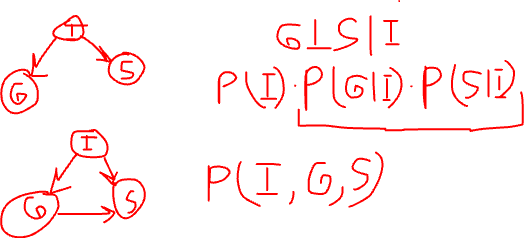 I
G
S
G⊥S|I
P(I)·P(G|I)·P(S|I)
I
G
S
P(I,G,S)